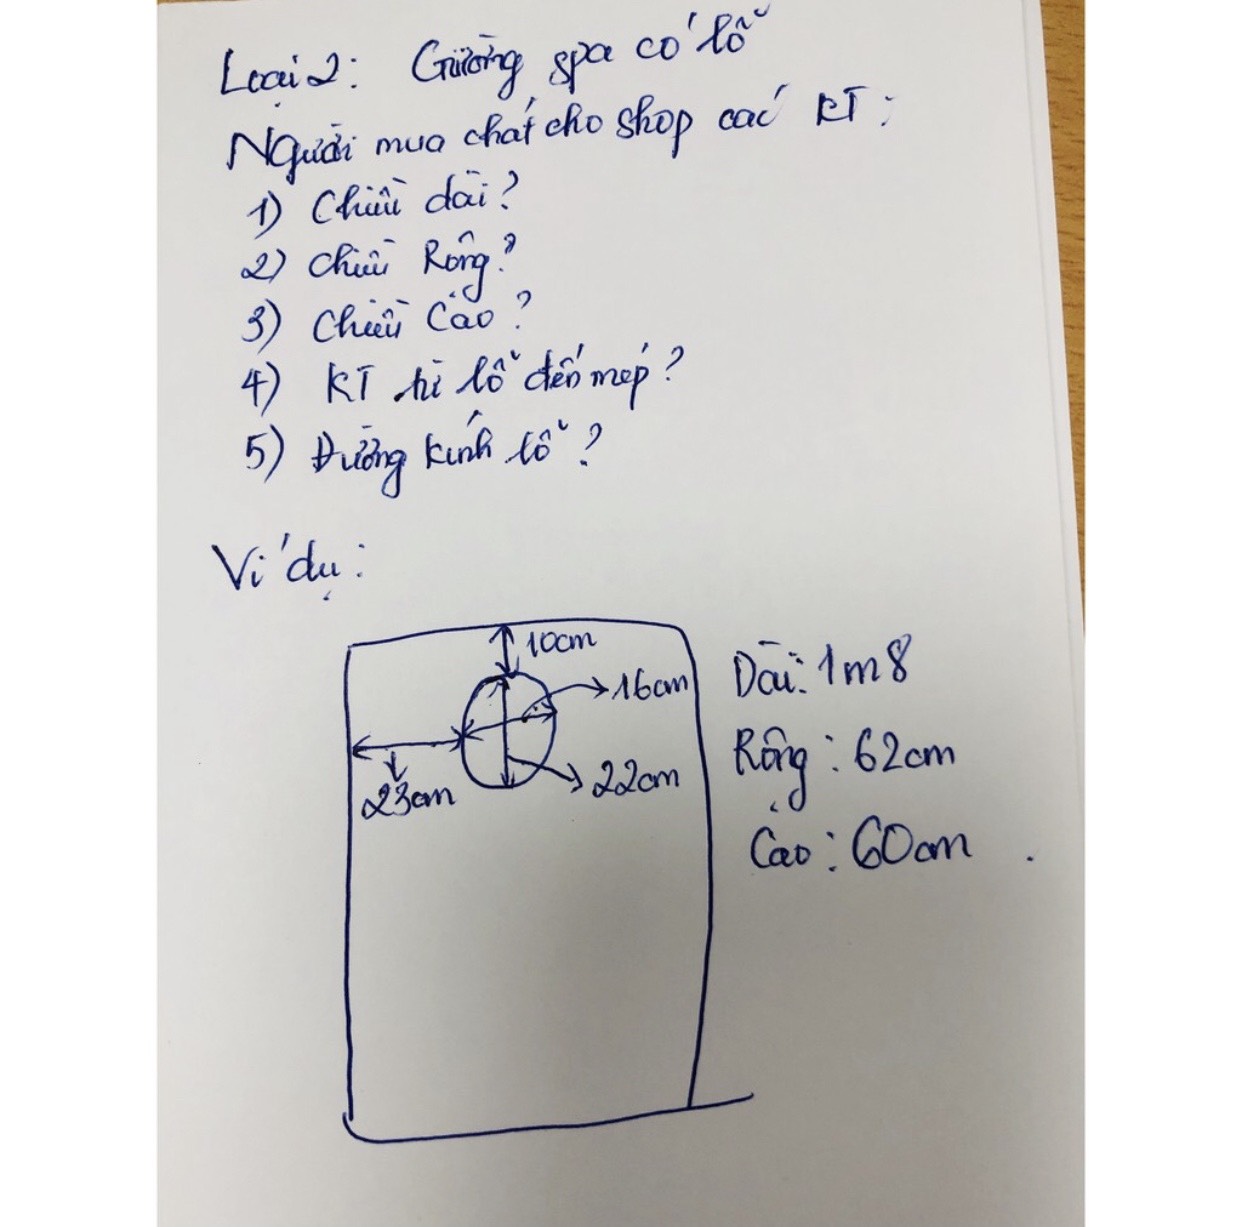 Loại 2: Giường spa có lỗ
Người mua chát cho shop các KT:
1) Chiều dài?
2) Chiều Rộng?
3) Chiều Cao?
4) KT từ lỗ đến mép?
5) Đường kính lỗ?
Ví dụ:
10cm
16cm
22cm
23cm
Dài: 1m8
Rộng: 62cm
Cao: 60cm